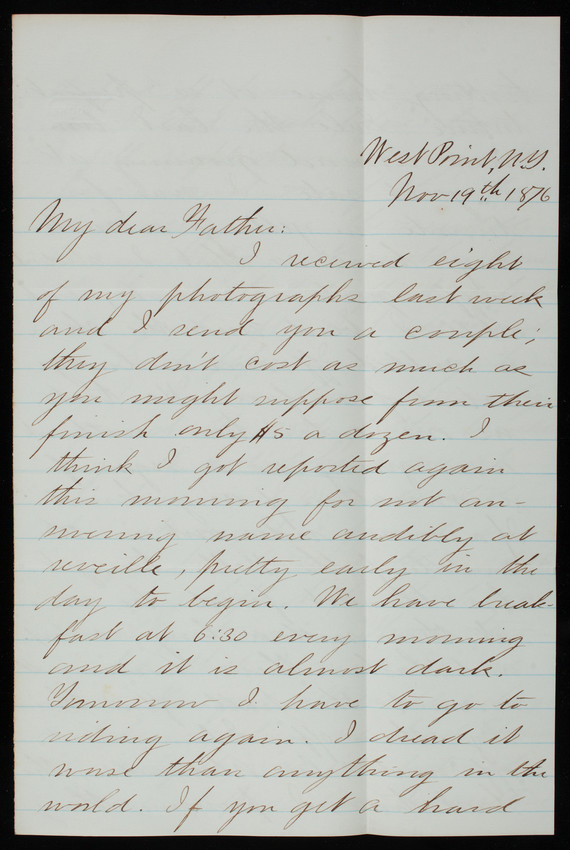 West Point, N.Y.
Nov 19th 1876
My dear Father:
I received eight
of my photographs last week
and I send you a couple;
they don't cost as much as
you might suppose from their
finish only $5 a dozen. I
think I got reported again
this morning for not an-
swering name audibly at
reveille, pretty early in the
day to begin. We have break-
fast at 6:30 every morning
and it is almost dark.
Tomorrow I have to go to
riding again. I dread it
worse than anything in the
world. If you get a hard